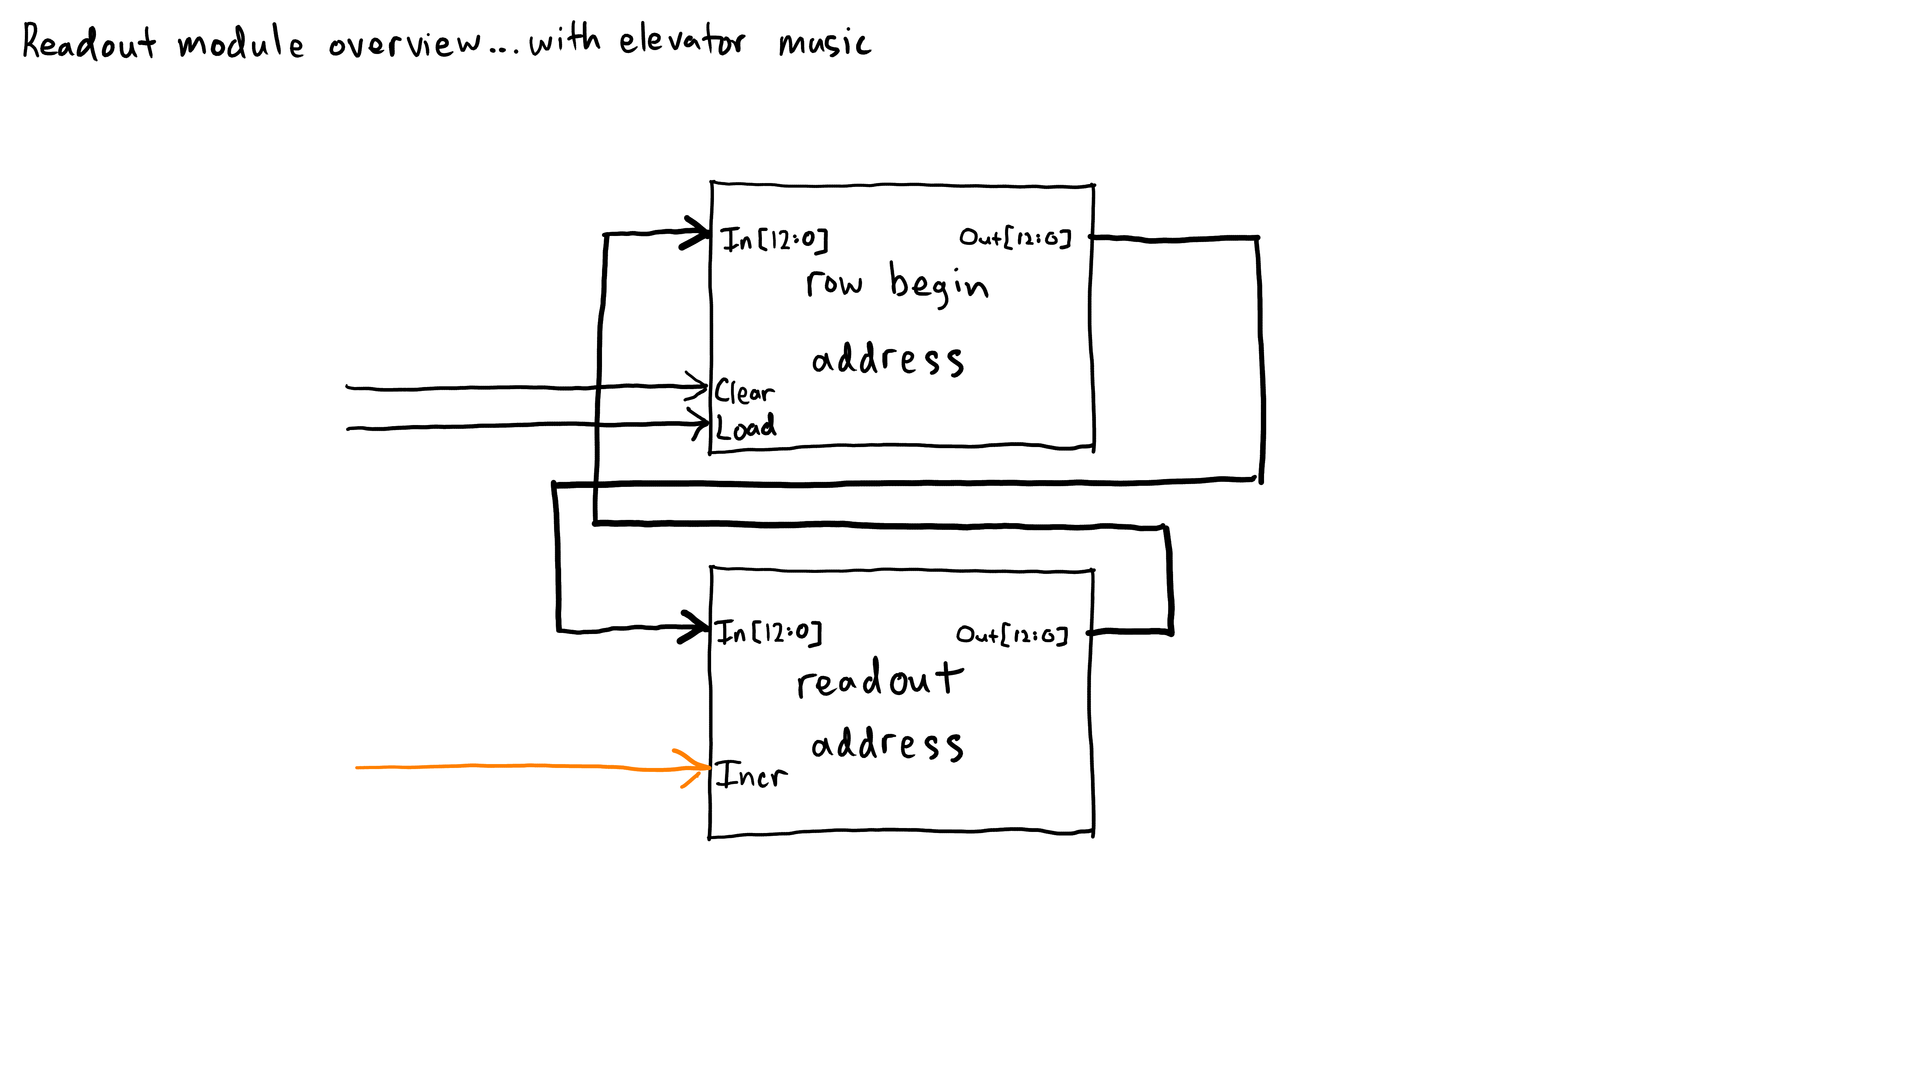 Readout module overview...with elevator music
In[12:0] Out[12:0]
row begin
address
Clear
Load
In[12:0] Out[12:0]
readout
address
Incr